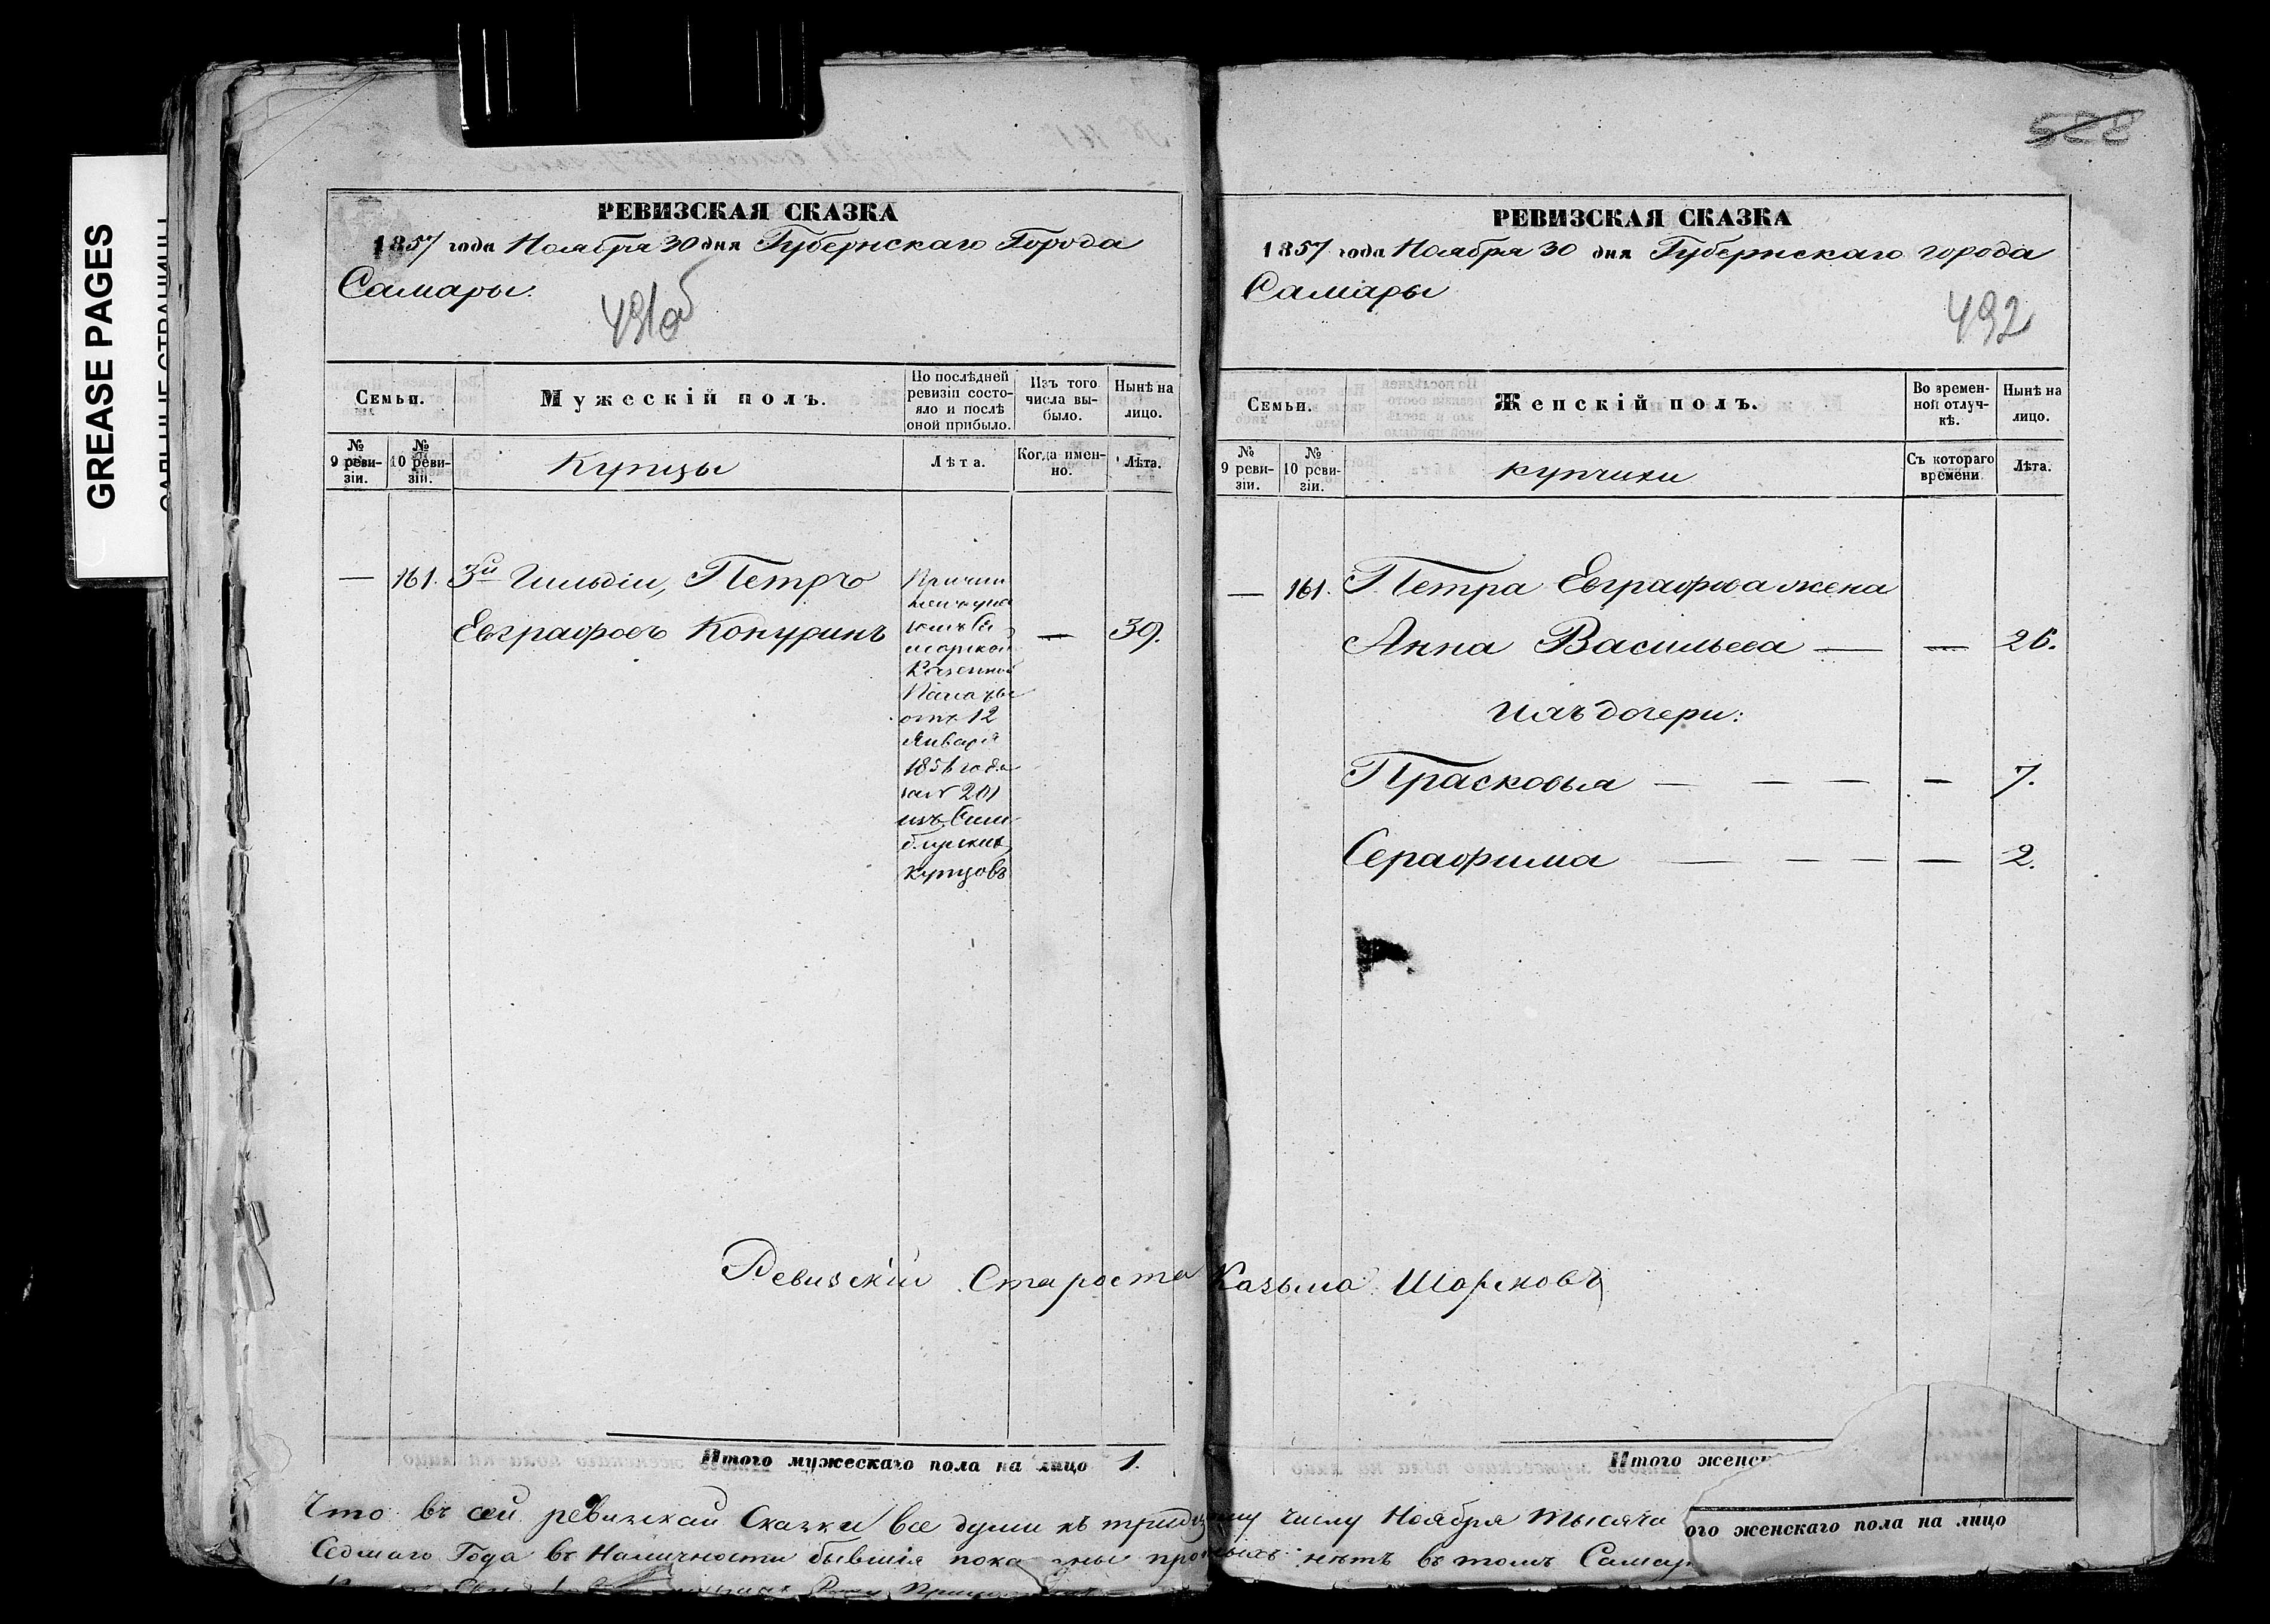 GREASE PAGES
РЕВИЗСКАЯ СКАЗКА
1857 года Ноября 30 дня Губернскаго Города
Самары.
491об
Семьи.
Мужескій полъ.
По послѣдней
ревизіи состо-
яло и послѣ
оной прибыло.
Изъ того
числа вы-
было.
Нынѣ на
лицо.
№
9 реви-
зіи.
№
10 реви-
зіи.
Купцы
Лѣта.
Когда имен-
но.
Лѣта.
— 161. 3й Гильдіи, Петръ
Евграфовъ Конуринъ — 39.
Казенной
Палаты
отъ 12
Января
185 года
за № 201
изъ Сим-
бирскихъ
купцовъ
Ревизскій Староста Козьма
Итого мужескаго пола на лицо 1.
528
РЕВИЗСКАЯ СКАЗКА
1857 года Ноября 30 дня Губернскаго города
Самары
492
Семьи.
Женскій полъ.
Во времен-
ной отлуч-
кѣ.
Нынѣ на
лицо.
№
9 реви-
зіи.
№
10 реви-
зіи.
купчихи
Съ котораго
времени
Лѣта.
— 161. Петра Евграфова жена
Анна Васильева — — 26.
Ихъ дочери:
Прасковья — — — — 7.
Серафима — — — — 2.
Итого женск
ого женскаго пола на лицо
Что въ сей ревизской Сказки все души къ тридцатому числу Ноября тысяча
Седмаго Года въ Наличности бывшія показаны прописныхъ нѣтъ въ томъ Самар